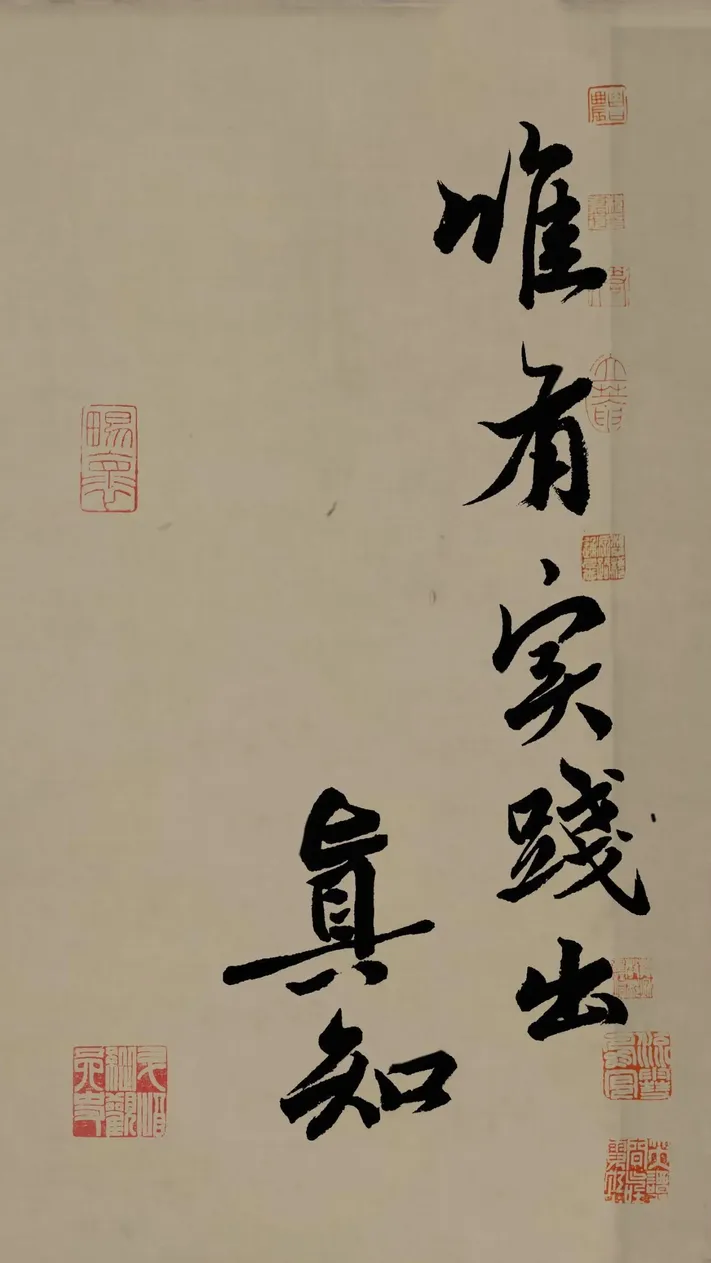 唯有实踐出
真知